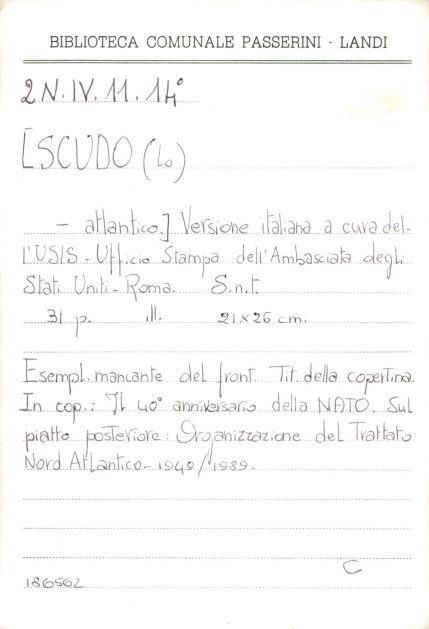 BIBLIOTECA COMUNALE PASSERINI - LANDI
2N.IV.11.14°
[SCUDO (Lo)
- atlantico.] Versione italiana a cura del-
l'USIS - Ufficio Stampa dell'Ambasciata degli
Stati Uniti - Roma. S.n.t.
31 p. ill. 21x26 cm.
Esempl. mancante del front. Tit. della copertina.
In cop.: Il 40° anniversario della NATO. Sul
piatto posteriore: Organizzazione del Trattato
Nord Atlantico - 1949/1989.
C
186562